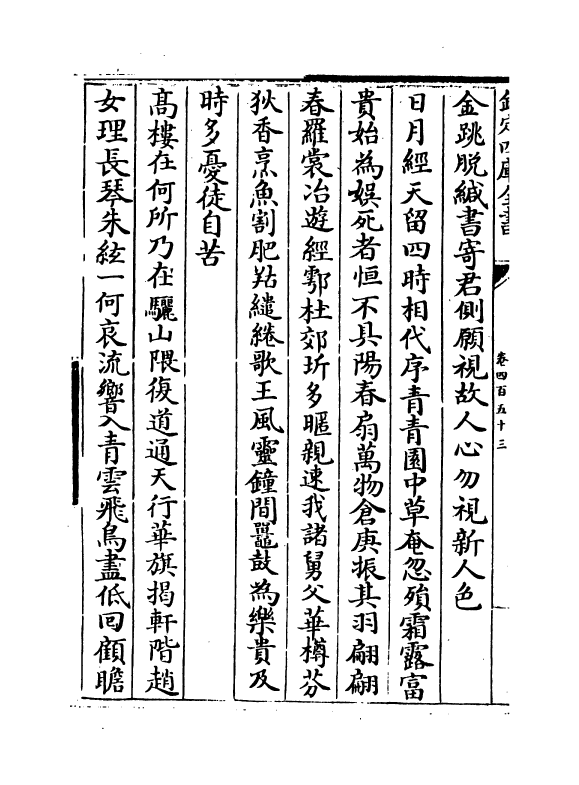 欽定四庫全書
卷四百五十三
金跳脱緘書寄君側願視故人心勿視新人色
日月經天留四時相代序青青園中草奄忽殞霜露富
貴始為娛死者恒不具陽春扇萬物倉庚振其羽翩翩
春羅裳冶遊經鄠杜郊圻多暱親速我諸舅父華樽芬
狄香烹魚割肥羜繾綣歌王風靈鐘間鼉鼓為樂貴及
時多憂徒自苦
髙樓在何所乃在驪山隈復道通天行華旗揭軒階趙
女理長琴朱絃一何哀流響入青雲飛鳥盡低回顧瞻